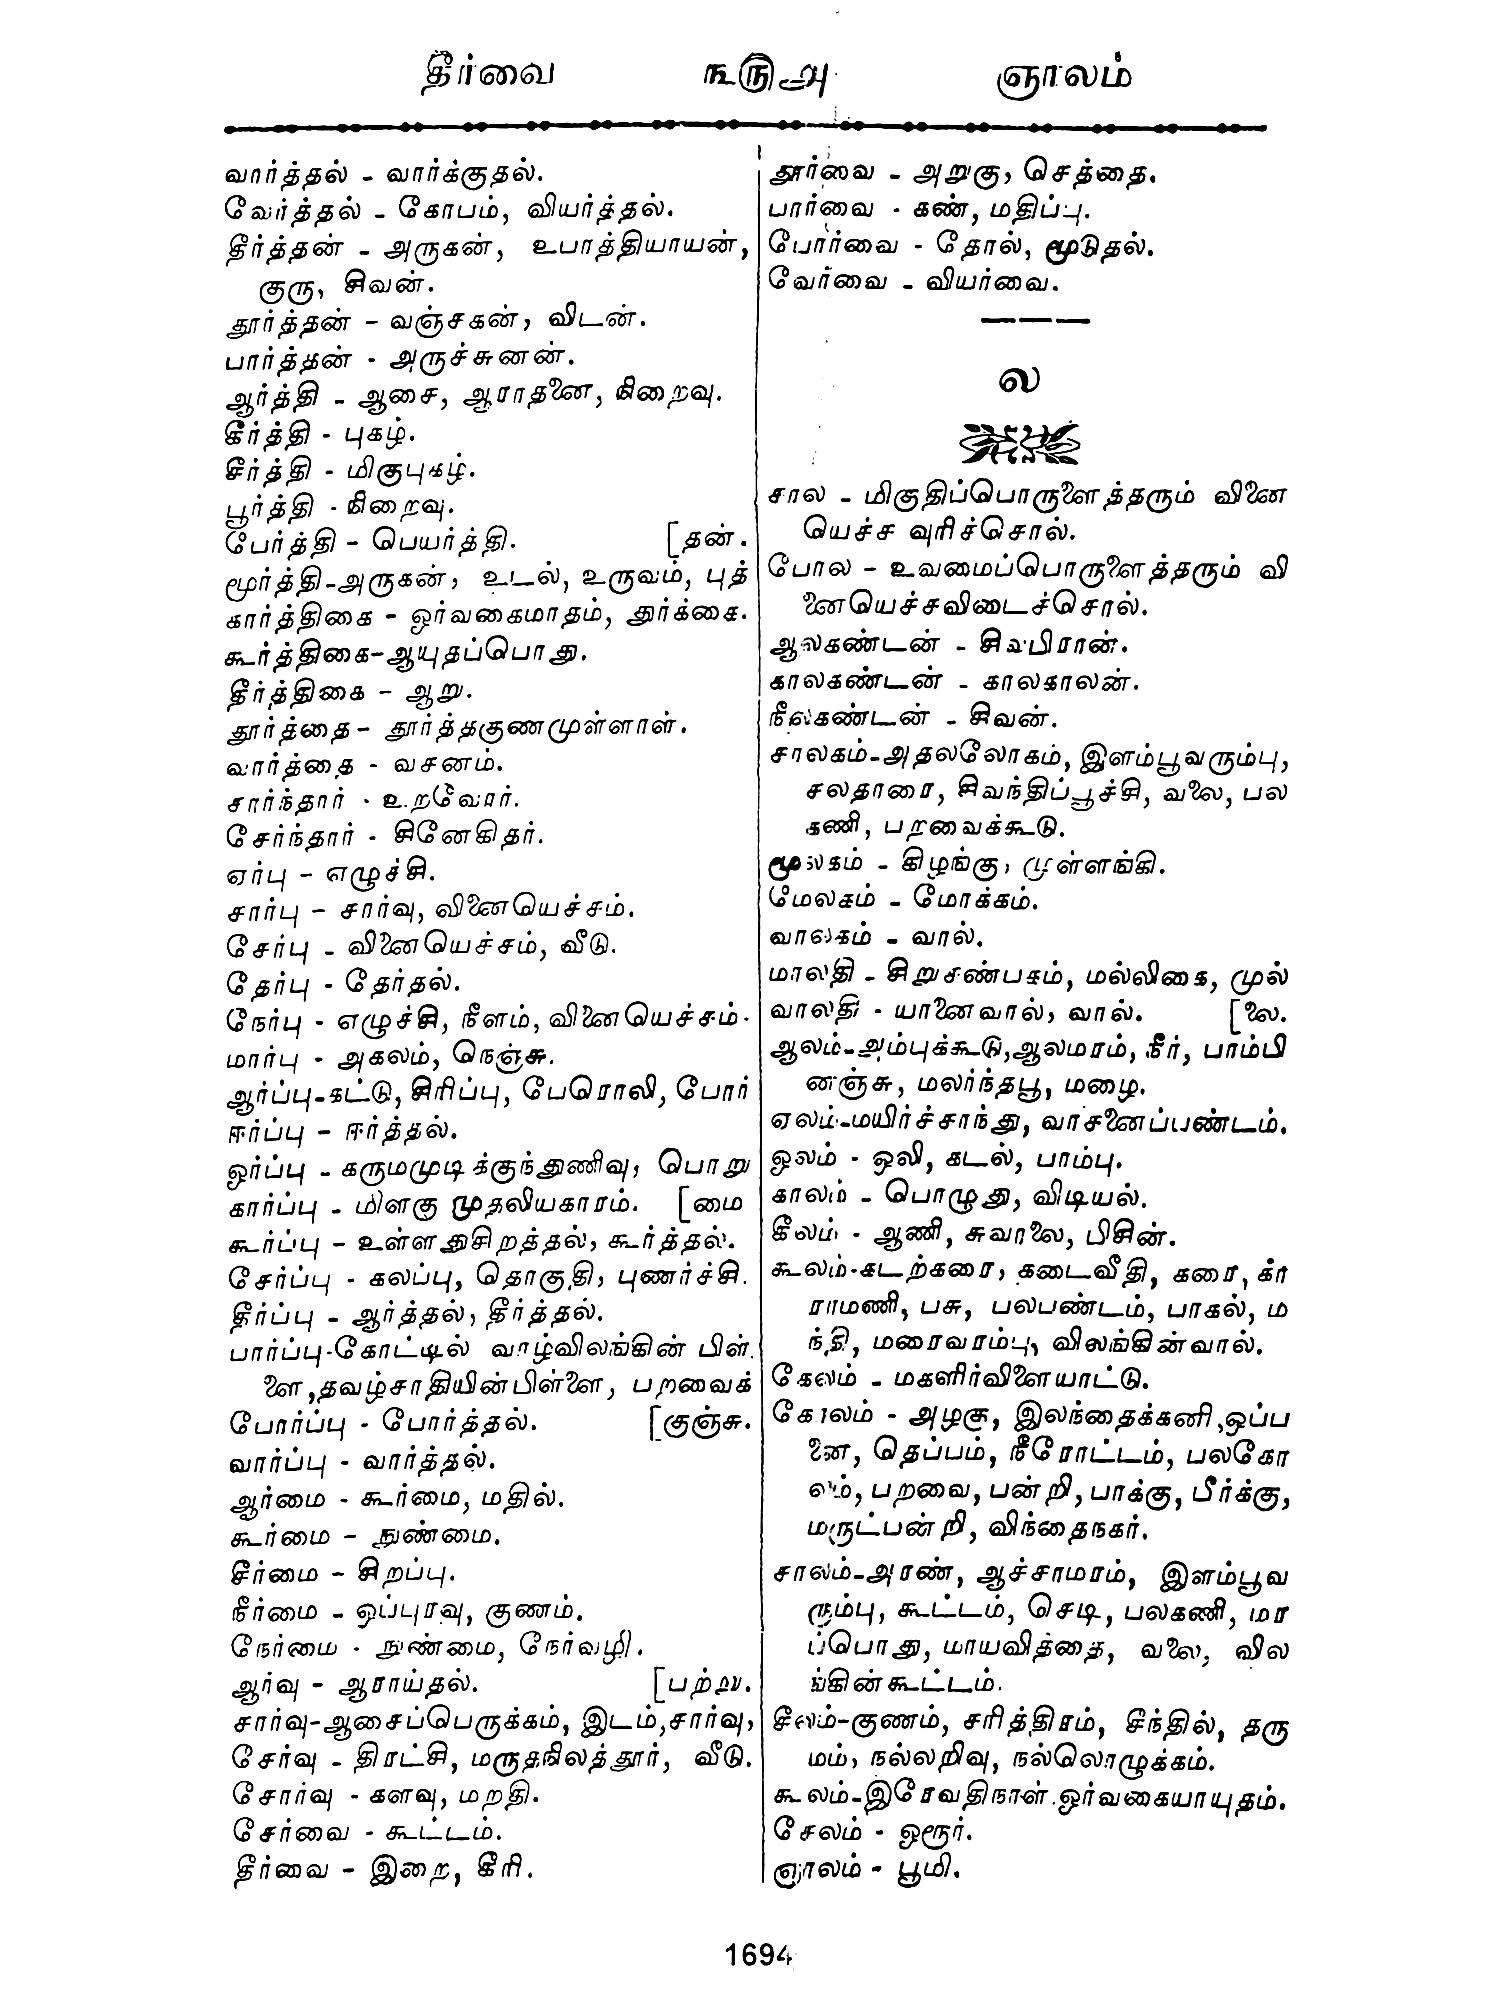 தீர்வை ௩௫௮ ஞாலம்
வார்த்தல் - வார்க்குதல்.
வேர்த்தல் - கோபம், வியர்த்தல்.
தீர்த்தன் - அருகன், உபாத்தியாயன்,
குரு, சிவன்.
தூர்த்தன் - வஞ்சகன், விடன்.
பார்த்தன் - அருச்சுனன்.
ஆர்த்தி - ஆசை, ஆராதனை, நிறைவு.
கீர்த்தி - புகழ்.
சீர்த்தி - மிகுபுகழ்.
பூர்த்தி - நிறைவு.
பேர்த்தி - பெயர்த்தி. [தன்.
மூர்த்தி-அருகன், உடல், உருவம், புத்
கார்த்திகை - ஓர்வகைமாதம், துர்க்கை.
கூர்த்திகை-ஆயுதப்பொது.
தீர்த்திகை - ஆறு.
தூர்த்தை - தூர்த்தகுணமுள்ளாள்.
வார்த்தை - வசனம்.
சார்ந்தார் - உறவோர்.
சேர்ந்தார் - சினேகிதர்.
ஏர்பு - எழுச்சி.
சார்பு - சார்வு, வினையெச்சம்.
சேர்பு - வினையெச்சம், வீடு.
தேர்பு - தேர்தல்.
நேர்பு - எழுச்சி, நீளம், வினையெச்சம்.
மார்பு - அகலம், நெஞ்சு.
ஆர்ப்பு-கட்டு, சிரிப்பு, பேரொலி, போர்
ஈர்ப்பு - ஈர்த்தல்.
ஓர்ப்பு - கருமமுடிக்குந்துணிவு, பொறு
கார்ப்பு - மிளகு முதலியகாரம். [மை
கூர்ப்பு - உள்ளதுசிறத்தல், கூர்த்தல்.
சேர்ப்பு - கலப்பு, தொகுதி, புணர்ச்சி.
தீர்ப்பு - ஆர்த்தல், தீர்த்தல்.
பார்ப்பு-கோட்டில் வாழ்விலங்கின் பிள்
ளை,தவழ்சாதியின்பிள்ளை, பறவைக்
போர்ப்பு - போர்த்தல். [குஞ்சு.
வார்ப்பு - வார்த்தல்.
ஆர்மை - கூர்மை, மதில்.
கூர்மை - நுண்மை.
சீர்மை - சிறப்பு.
நீர்மை - ஒப்புரவு, குணம்.
நேர்மை - நுண்மை, நேர்வழி.
ஆர்வு - ஆராய்தல். [பற்று.
சார்வு-ஆசைப்பெருக்கம், இடம்,சார்வு,
சேர்வு - திரட்சி, மருதநிலத்தூர், வீடு.
சோர்வு - களவு, மறதி.
சேர்வை - கூட்டம்.
தீர்வை - இறை, கீரி.
தூர்வை - அறுகு, செத்தை.
பார்வை - கண், மதிப்பு.
போர்வை - தோல், மூடுதல்.
வேர்வை - வியர்வை.
ல
சால - மிகுதிப்பொருளைத்தரும் வினை
யெச்ச வுரிச்சொல்.
போல - உவமைப்பொருளைத்தரும் வி
னையெச்சவிடைச்சொல்.
ஆலகண்டன் - சிவபிரான்.
காலகண்டன் - காலகாலன்.
நீலகண்டன் - சிவன்.
சாலகம்-அதலலோகம், இளம்பூவரும்பு,
சலதாரை, சிவந்திப்பூச்சி, வலை, பல
கணி, பறவைக்கூடு.
மூலகம் - கிழங்கு, முள்ளங்கி.
மேலகம் - மோக்கம்.
வாலகம் - வால்.
மாலதி - சிறுசண்பகம், மல்லிகை, முல்
வாலதி - யானைவால், வால். [லை.
ஆலம்-அம்புக்கூடு,ஆலமரம், நீர், பாம்பி
னஞ்சு, மலர்ந்தபூ, மழை.
ஏலம்-மயிர்ச்சாந்து, வாசனைப்பண்டம்.
ஓலம் - ஒலி, கடல், பாம்பு.
காலம் - பொழுது, விடியல்.
கீலம் - ஆணி, சுவாலை, பிசின்.
கூலம்-கடற்கரை, கடைவீதி, கரை, கா
ராமணி, பசு, பலபண்டம், பாகல், ம
ந்தி, மரைவரம்பு, விலங்கின்வால்.
கேலம் - மகளிர்விளையாட்டு.
கோலம் - அழகு, இலந்தைக்கனி,ஒப்ப
னை, தெப்பம், நீரோட்டம், பலகோ
லம், பறவை, பன்றி, பாக்கு, பீர்க்கு,
மருட்பன்றி, விந்தைநகர்.
சாலம்-அரண், ஆச்சாமரம், இளம்பூவ
ரும்பு, கூட்டம், செடி, பலகணி, மர
ப்பொது, மாயவித்தை, வலை, வில
ங்கின்கூட்டம்.
சீலம்-குணம், சரித்திரம், சீந்தில், தரு
மம், நல்லறிவு, நல்லொழுக்கம்.
சூலம்-இரேவதிநாள்.ஓர்வகையாயுதம்.
சேலம் - ஓரூர்.
ஞாலம் - பூமி.
1694